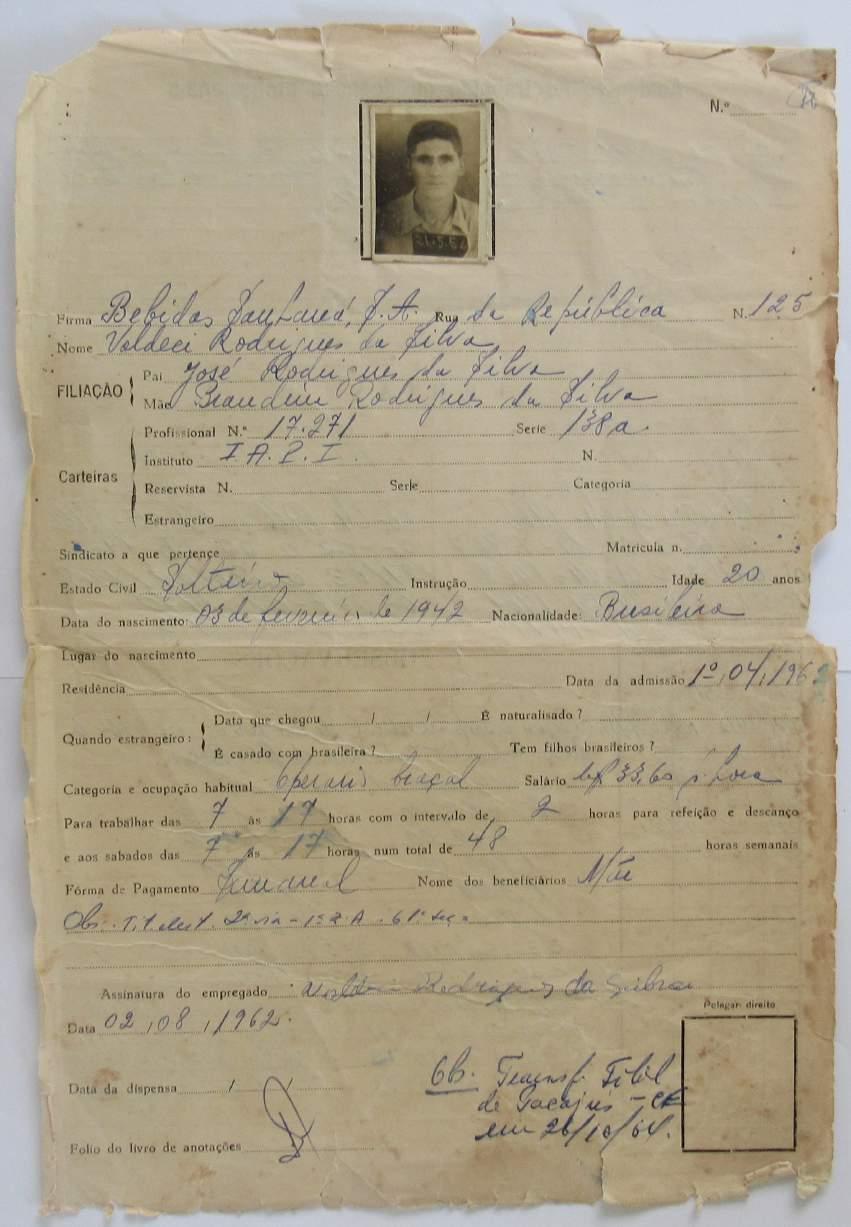 N.º
21.5.62
Firma Bebidas S.A. Rua da República N. 125
Nome Valdeci Rodrigues da Silva
FILIAÇÃO
Pai José Rodrigues da Silva
Mãe Rodrigues da Silva
Carteiras
Profissional N.º 17.271 Serie 138a.
Instituto I.A.P.I. N.
Reservista N. Serie Categoria
Estrangeiro
Sindicato a que pertençe Matricula n.
Estado Civil Solteiro Instrução Idade 20 anos
Data do nascimento: 03 de fevereiro de 1942 Nacionalidade: Brasileira
Lugar do nascimento
Residência Data da admissão 1º, 04, 1962
Quando estrangeiro:
Data que chegou / / É naturalisado?
É casado com brasileira? Tem filhos brasileiros?
Categoria e ocupação habitual Operario braçal Salário 33,60 p/hora
Para trabalhar das 7 às 17 horas com o intervalo de 2 horas para refeição e descanço
e aos sabados das 7 ás 17 horas num total de 48 horas semanais
Fórma de Pagamento Semanal Nome dos beneficiários Mãe
Obs. Tit. 2ª via - 1ª Z A - 61ª
Assinatura do empregado Rodrigues da Silva
Data 02, 08, 1962.
Polegar direito
Data da dispensa / /
Ob. Transf. Filial
de Pacajús - CE
em 26/10/64.
Folio do livro de anotações